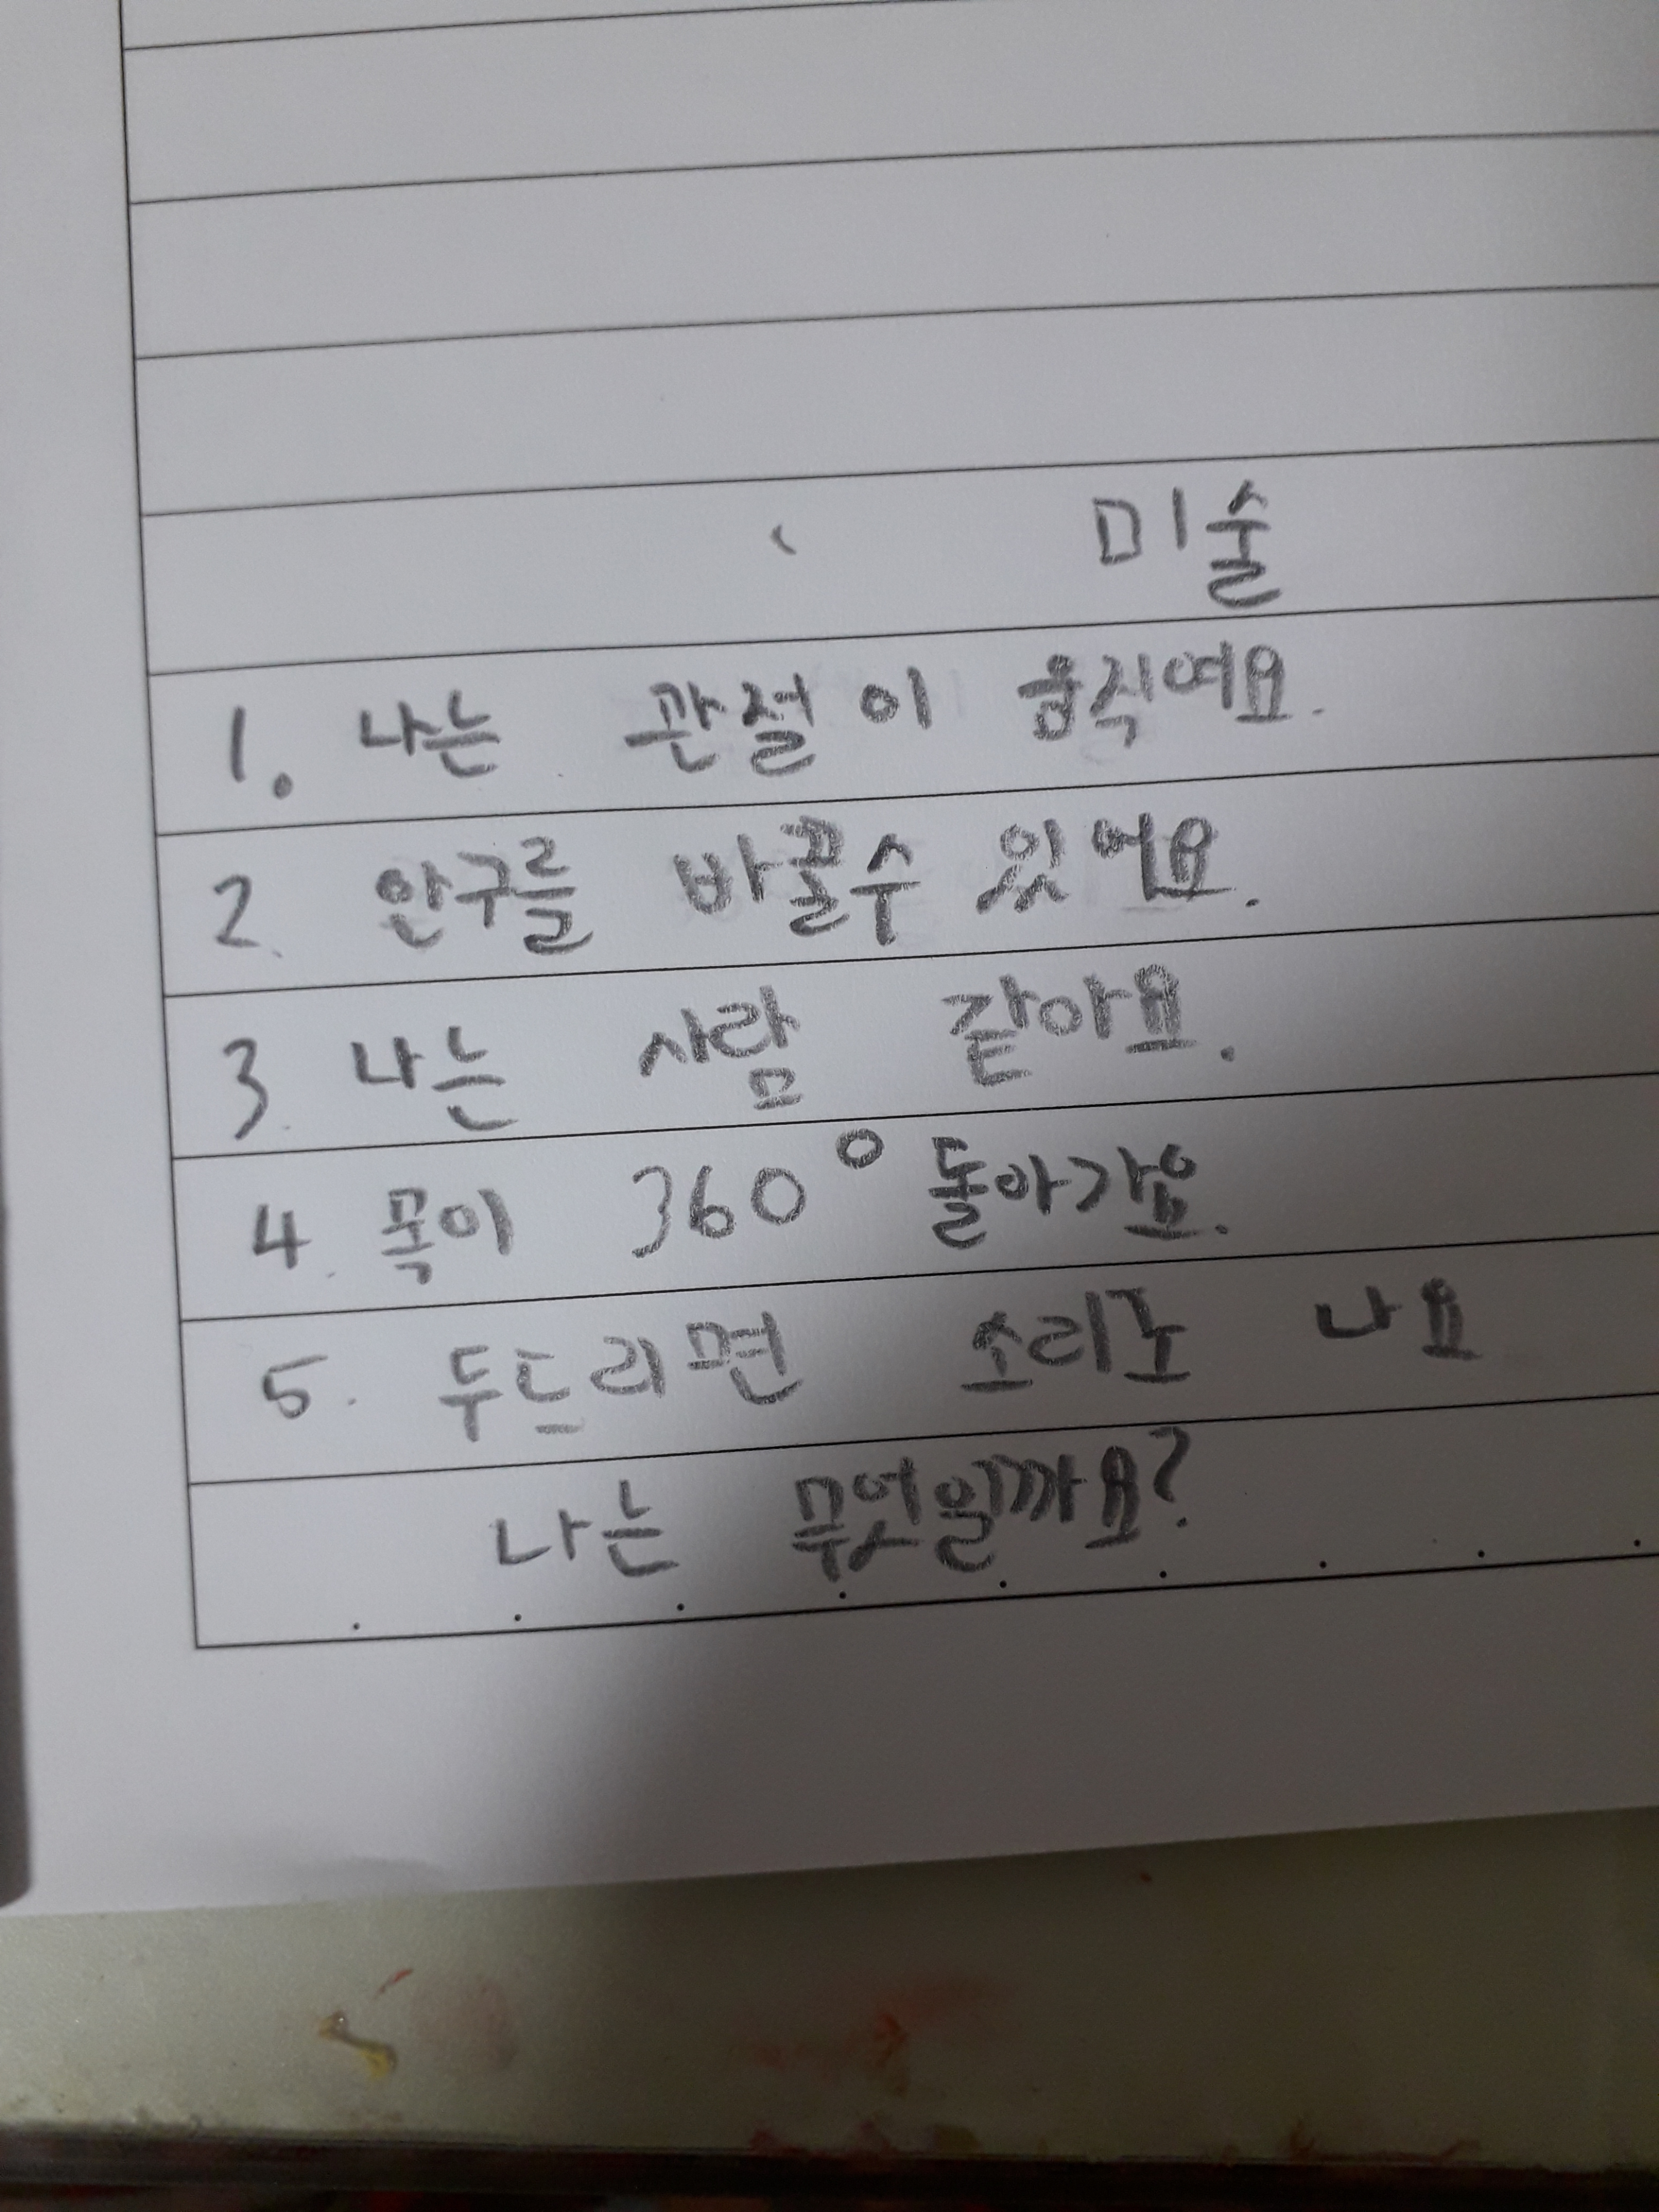 미술
1. 나는 관절이 움직여요.
2. 안구를 바꿀수 있어요.
3. 나는 사람 같아요.
4. 목이 360° 돌아가요.
5. 두드리면 소리도 나요
나는 무엇일까요?